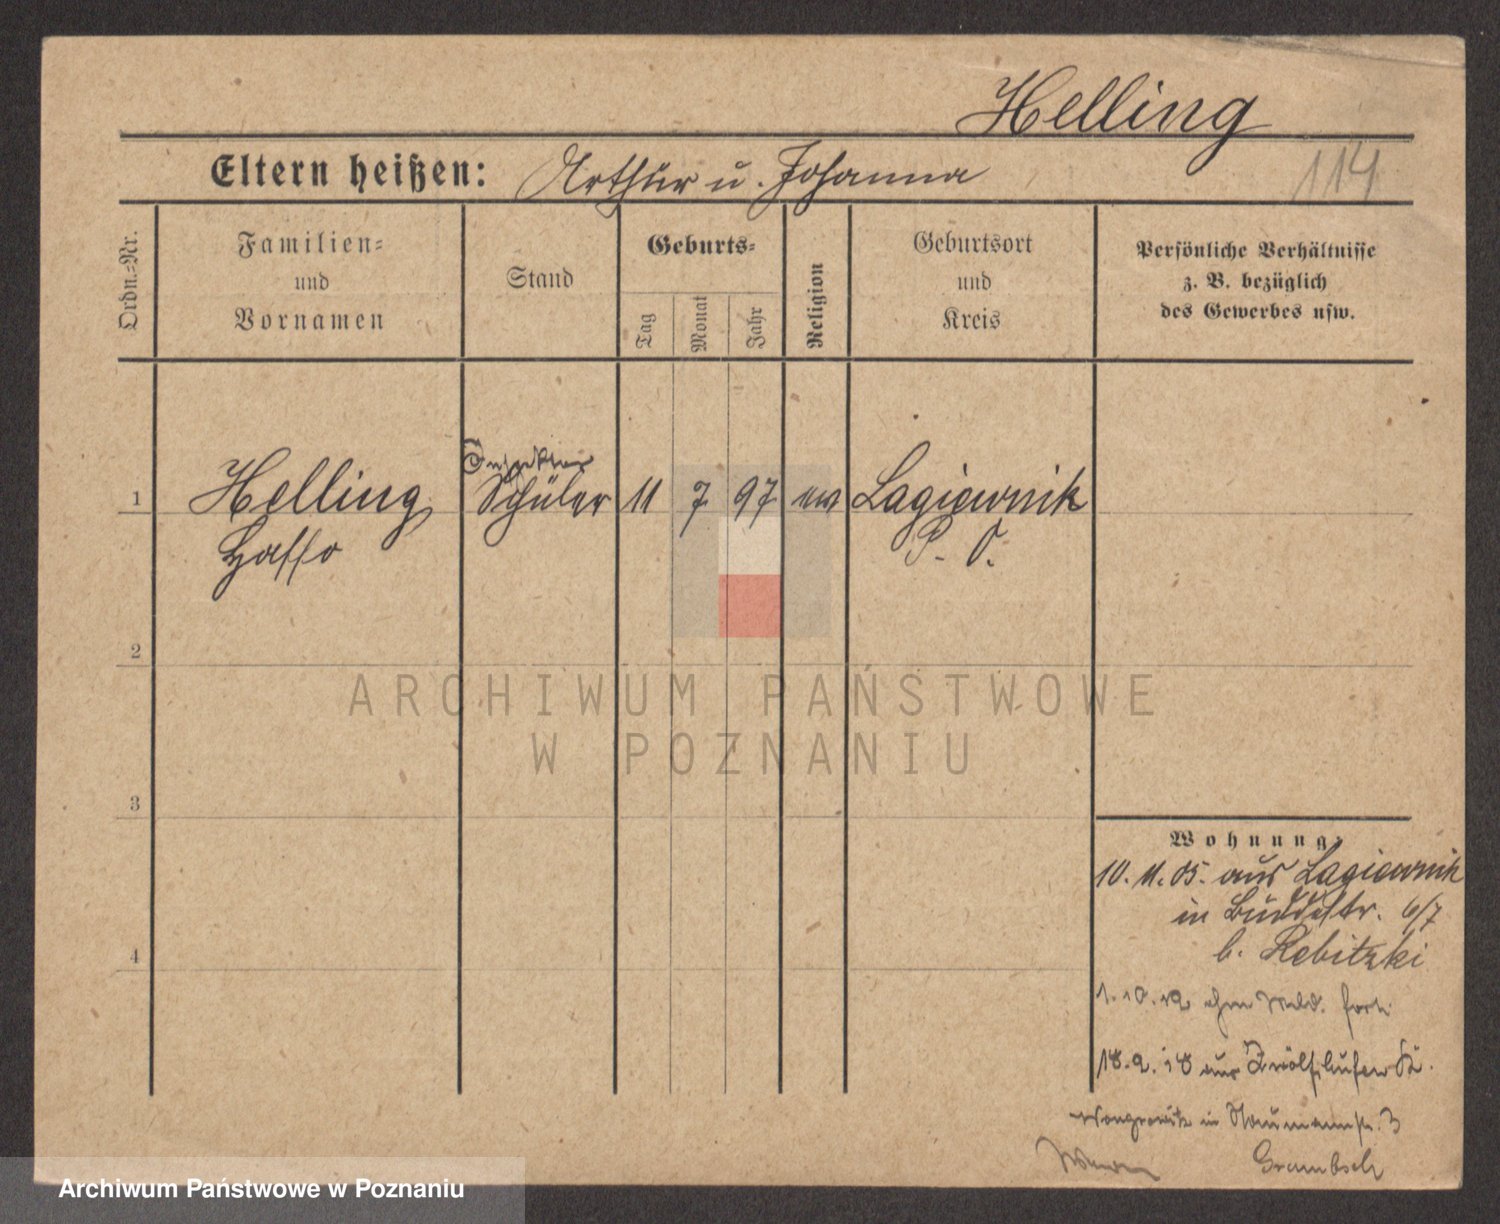 Helling
Eltern heißen: Arthur u. Johanna
114
Ordn.-Nr.
Familien-
und
Vornamen
Stand
Geburts-
Tag
Monat
Jahr
Religion
Geburtsort
und
Kreis
Persönliche Verhältnisse
z. B. bezüglich
des Gewerbes usw.
1
Helling
Hasso
Schüler
11
7
97
ev
Lagiewnik
P. O.
2
ARCHIWUM PAŃSTWOWE
W POZNANIU
3
4
Wohnung:
10. 11. 05. aus Lagiewnik
in Buddestr. 6/7
b. Rebitzki
1. 10. 12 ohne Meld. fort
18. 2. 18 aus Zwölfhufen Kr.
Wongrowitz in Naumannstr. 3
Grambsch
Archiwum Państwowe w Poznaniu